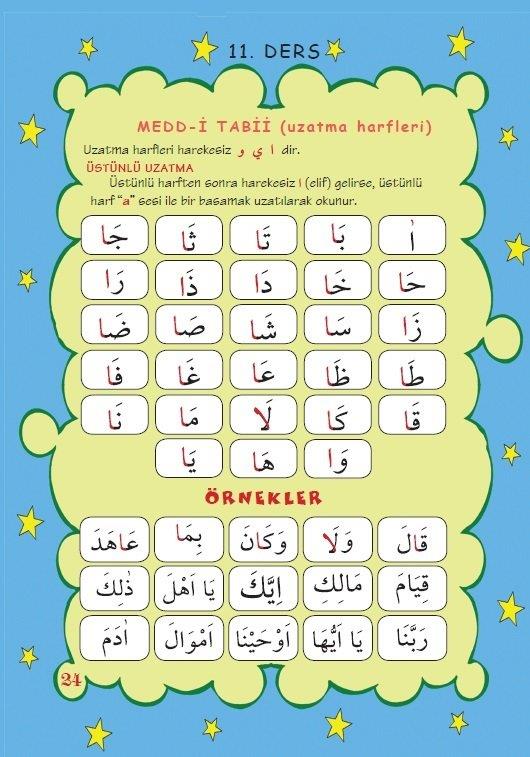 11. DERS
MEDD-İ TABİİ (uzatma harfleri)
Uzatma harfleri harekesiz ا ي و dir.
ÜSTÜNLÜ UZATMA
Üstünlü harften sonra harekesiz ا (elif) gelirse, üstünlü
harf "a" sesi ile bir basamak uzatılarak okunur.
اٰ بَا تَا ثَا جَا
حَا خَا دَا ذَا رَا
زَا سَا شَا صَا ضَا
طَا ظَا عَا غَا فَا
قَا كَا لَا مَا نَا
وَا هَا يَا
ÖRNEKLER
قَالَ وَلَا وَكَانَ بِمَا عَاهَدَ
قِيَامَ مَالِكِ اِيَّكَ يَا اَهْلَ ذٰلِكَ
رَبَّنَا يَا اَيُّهَا اَوْحَيْنَا اَمْوَالَ اٰدَمَ
24